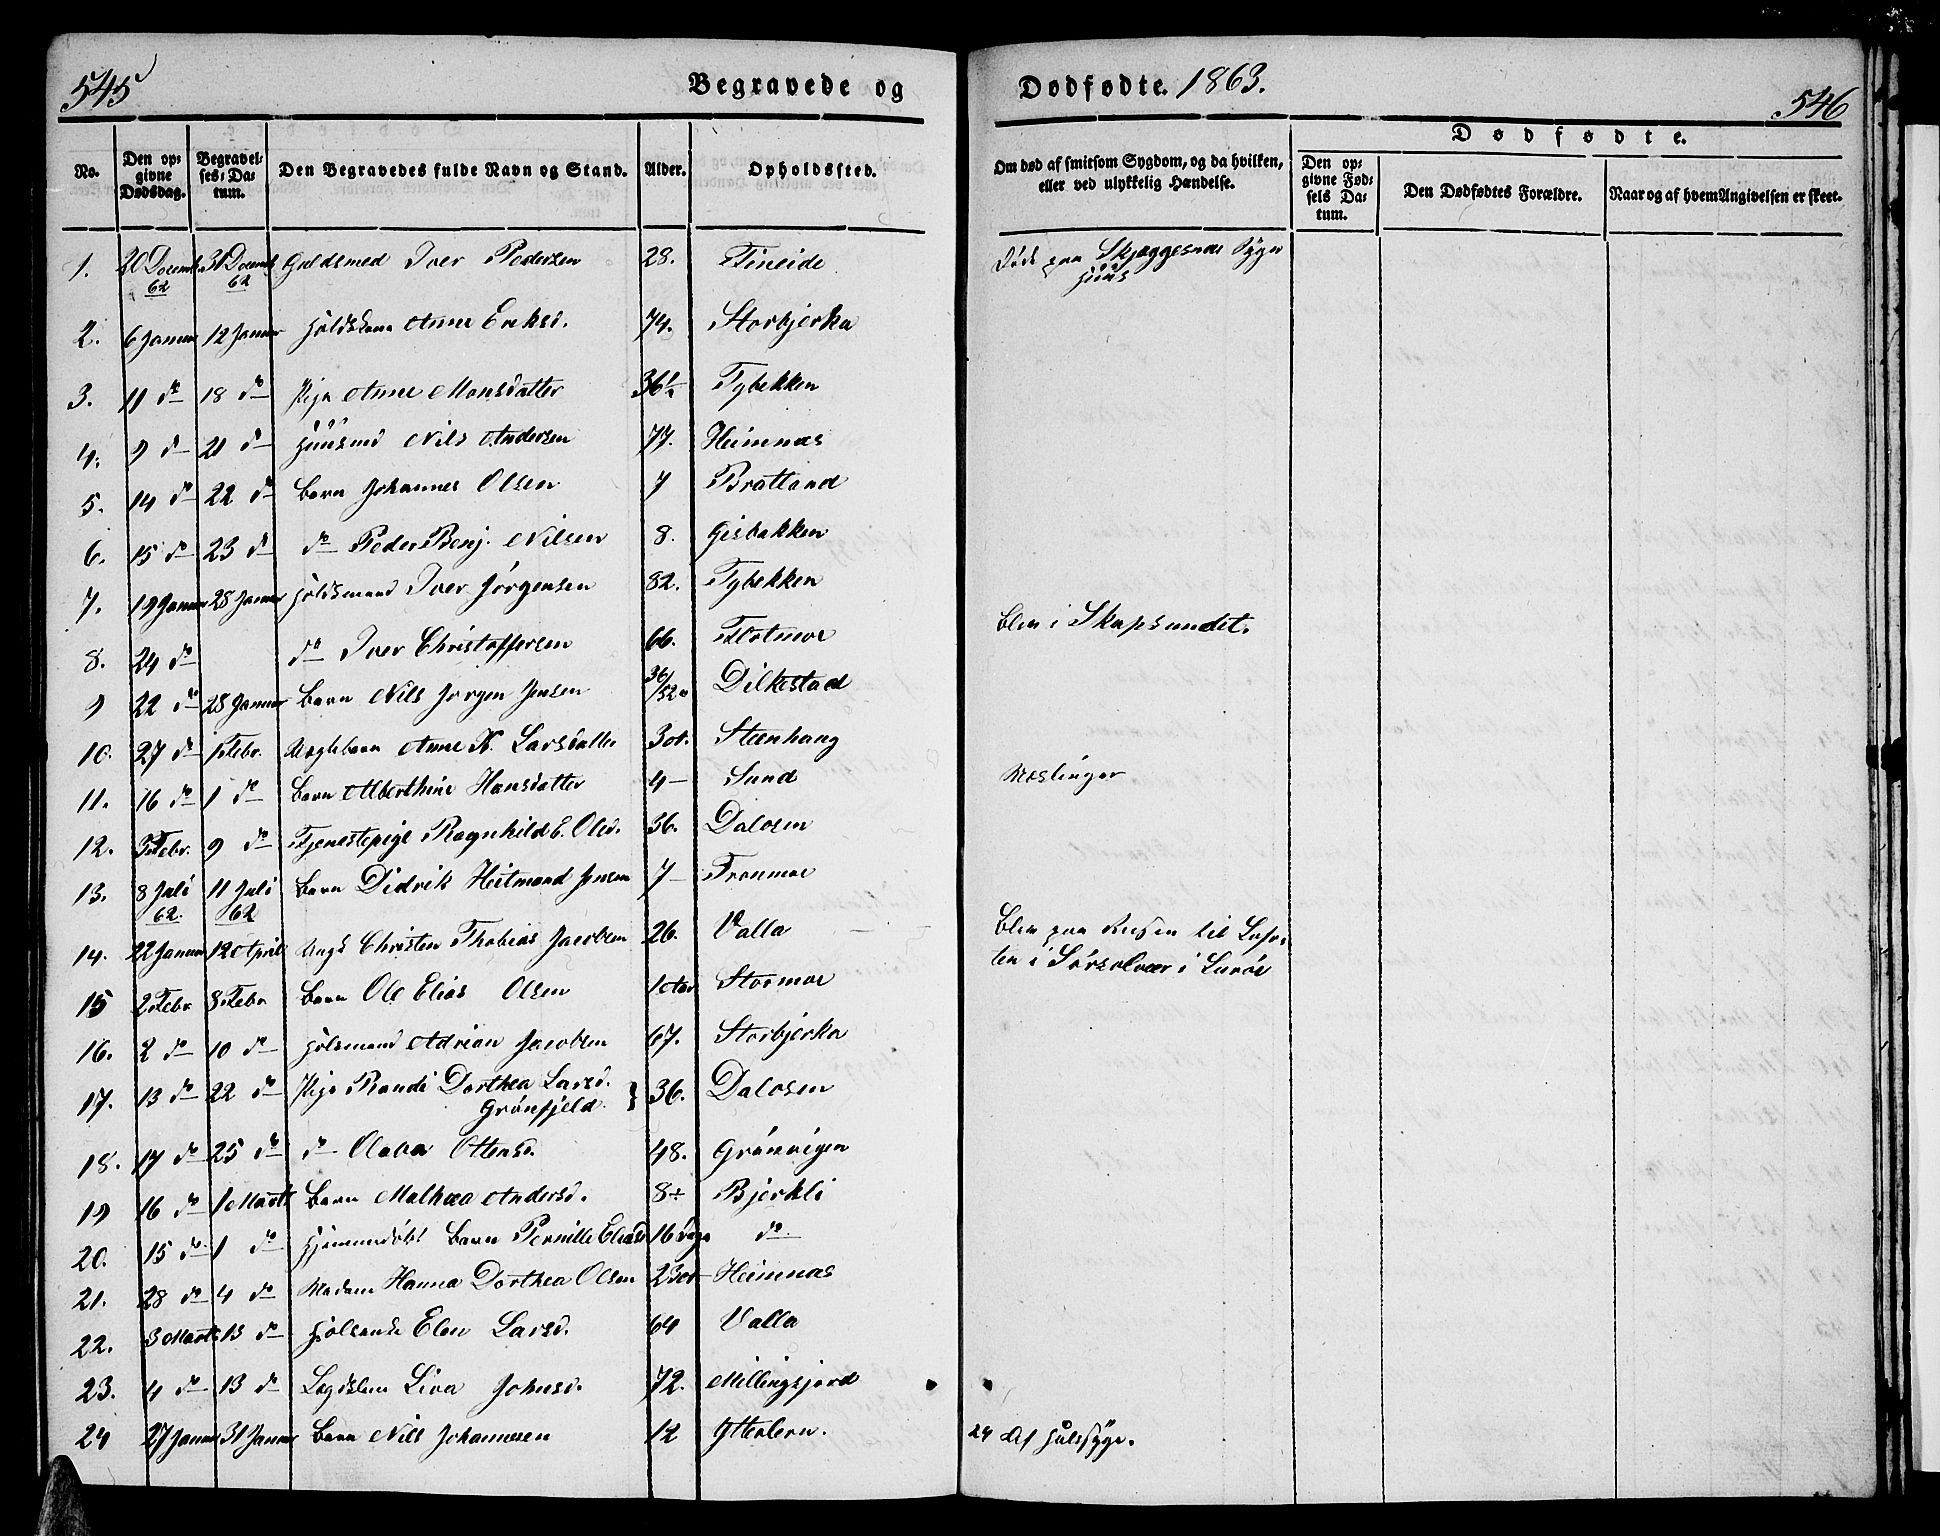 545
Begravede og
Dødfødte. 1863.
546
No.
Den opgivne Dødsdag.
Begravelses-Datum.
Den Begravedes fulde Navn og Stand.
Alder.
Opholdssted.
Om død af smitsom Sygdom, og da hvilken, eller ved ulykkelig Hændelse.
Dødfødte.
Den opgivne Fødsels Datum.
Den Dødfødtes Forældre.
Naar og af hvem Angivelsen er skeet.
1. 20 Decemb. 62 31 Decemb 62 Guldsmed Iver Pedersen 28. Fineide Døde paa Skjæggesnæs Syge
huus
2. 6 Januar 12 Januar Anne Eriksd. 74. Storbjerka
3. 11 do 18 do Pige Anne Monsdatter 36½ Tybekken
4. 9 do 21 do Huusmd Nils Andersen 77. Heimnæs
5. 14 do 22 do Barn Johannes Olsen 7 Bratland
6. 15 do 23 do do Peder Benj. Nilsen 8. Gisbakken
7. 19 Januar 28 Januar Iver Jørgensen 82. Tybekken
8. 24 do do Iver Christoffersen 66. Flotmoe Blev i Skapsundet.
9 22 do 28 Januar Barn Nils Jørgen Jensen 36/52 Dilkestad
10. 27 do 1 Febr. Anne K. Larsdatter Steenhaug
11. 16 do 1 do Barn Alberthine Hansdatter 4 — Sund Mæslinger
12. 3 Febr. 9 do Tjenestepige Ragnhild E. Olsd. 36. Dalosen
13. 8 Juli 62. 11 Juli 62 Barn Didrik Heitmand Jensen 7 — Fronmoe
14. 22 Januar 12 April Ungk Christen Thobias Jacobsen 26. Valla Blev paa Reisen til Lofo-
ten i Sørsolvær i Lurøe
15 2 Febr 8 Febr Barn Ole Elias Olsen Stormoe
16. 2 do 10 do Adrian Jacobsen 67. Storbjerka
17. 13 do 22 do Pige Randi Dorthea Larsd.
Grønfjeld. 36. Dalosen
18. 17 do 25 do do Olava Ottensd. 48. Grønvigen
19 16 do 1 Marts Barn Malhea Andersd. 8 Bjerkli
20. 15 do 1 do Hjemmedøbt Barn Pernille Eliasd 16 Dage do
21. 28 do 4 do Madam Hanna Dorthea Olsen 23 Heimnæs
22. 3 Marts 13 do Elen Larsd. 64 Valla
23. 4 do 13 do Lægdslem Liva Johnsd. 72. Millingsjord
24 27 Januar 31 Januar Barn Nils Johannesen 12 Ytterlern. 24 Af Halssyge.